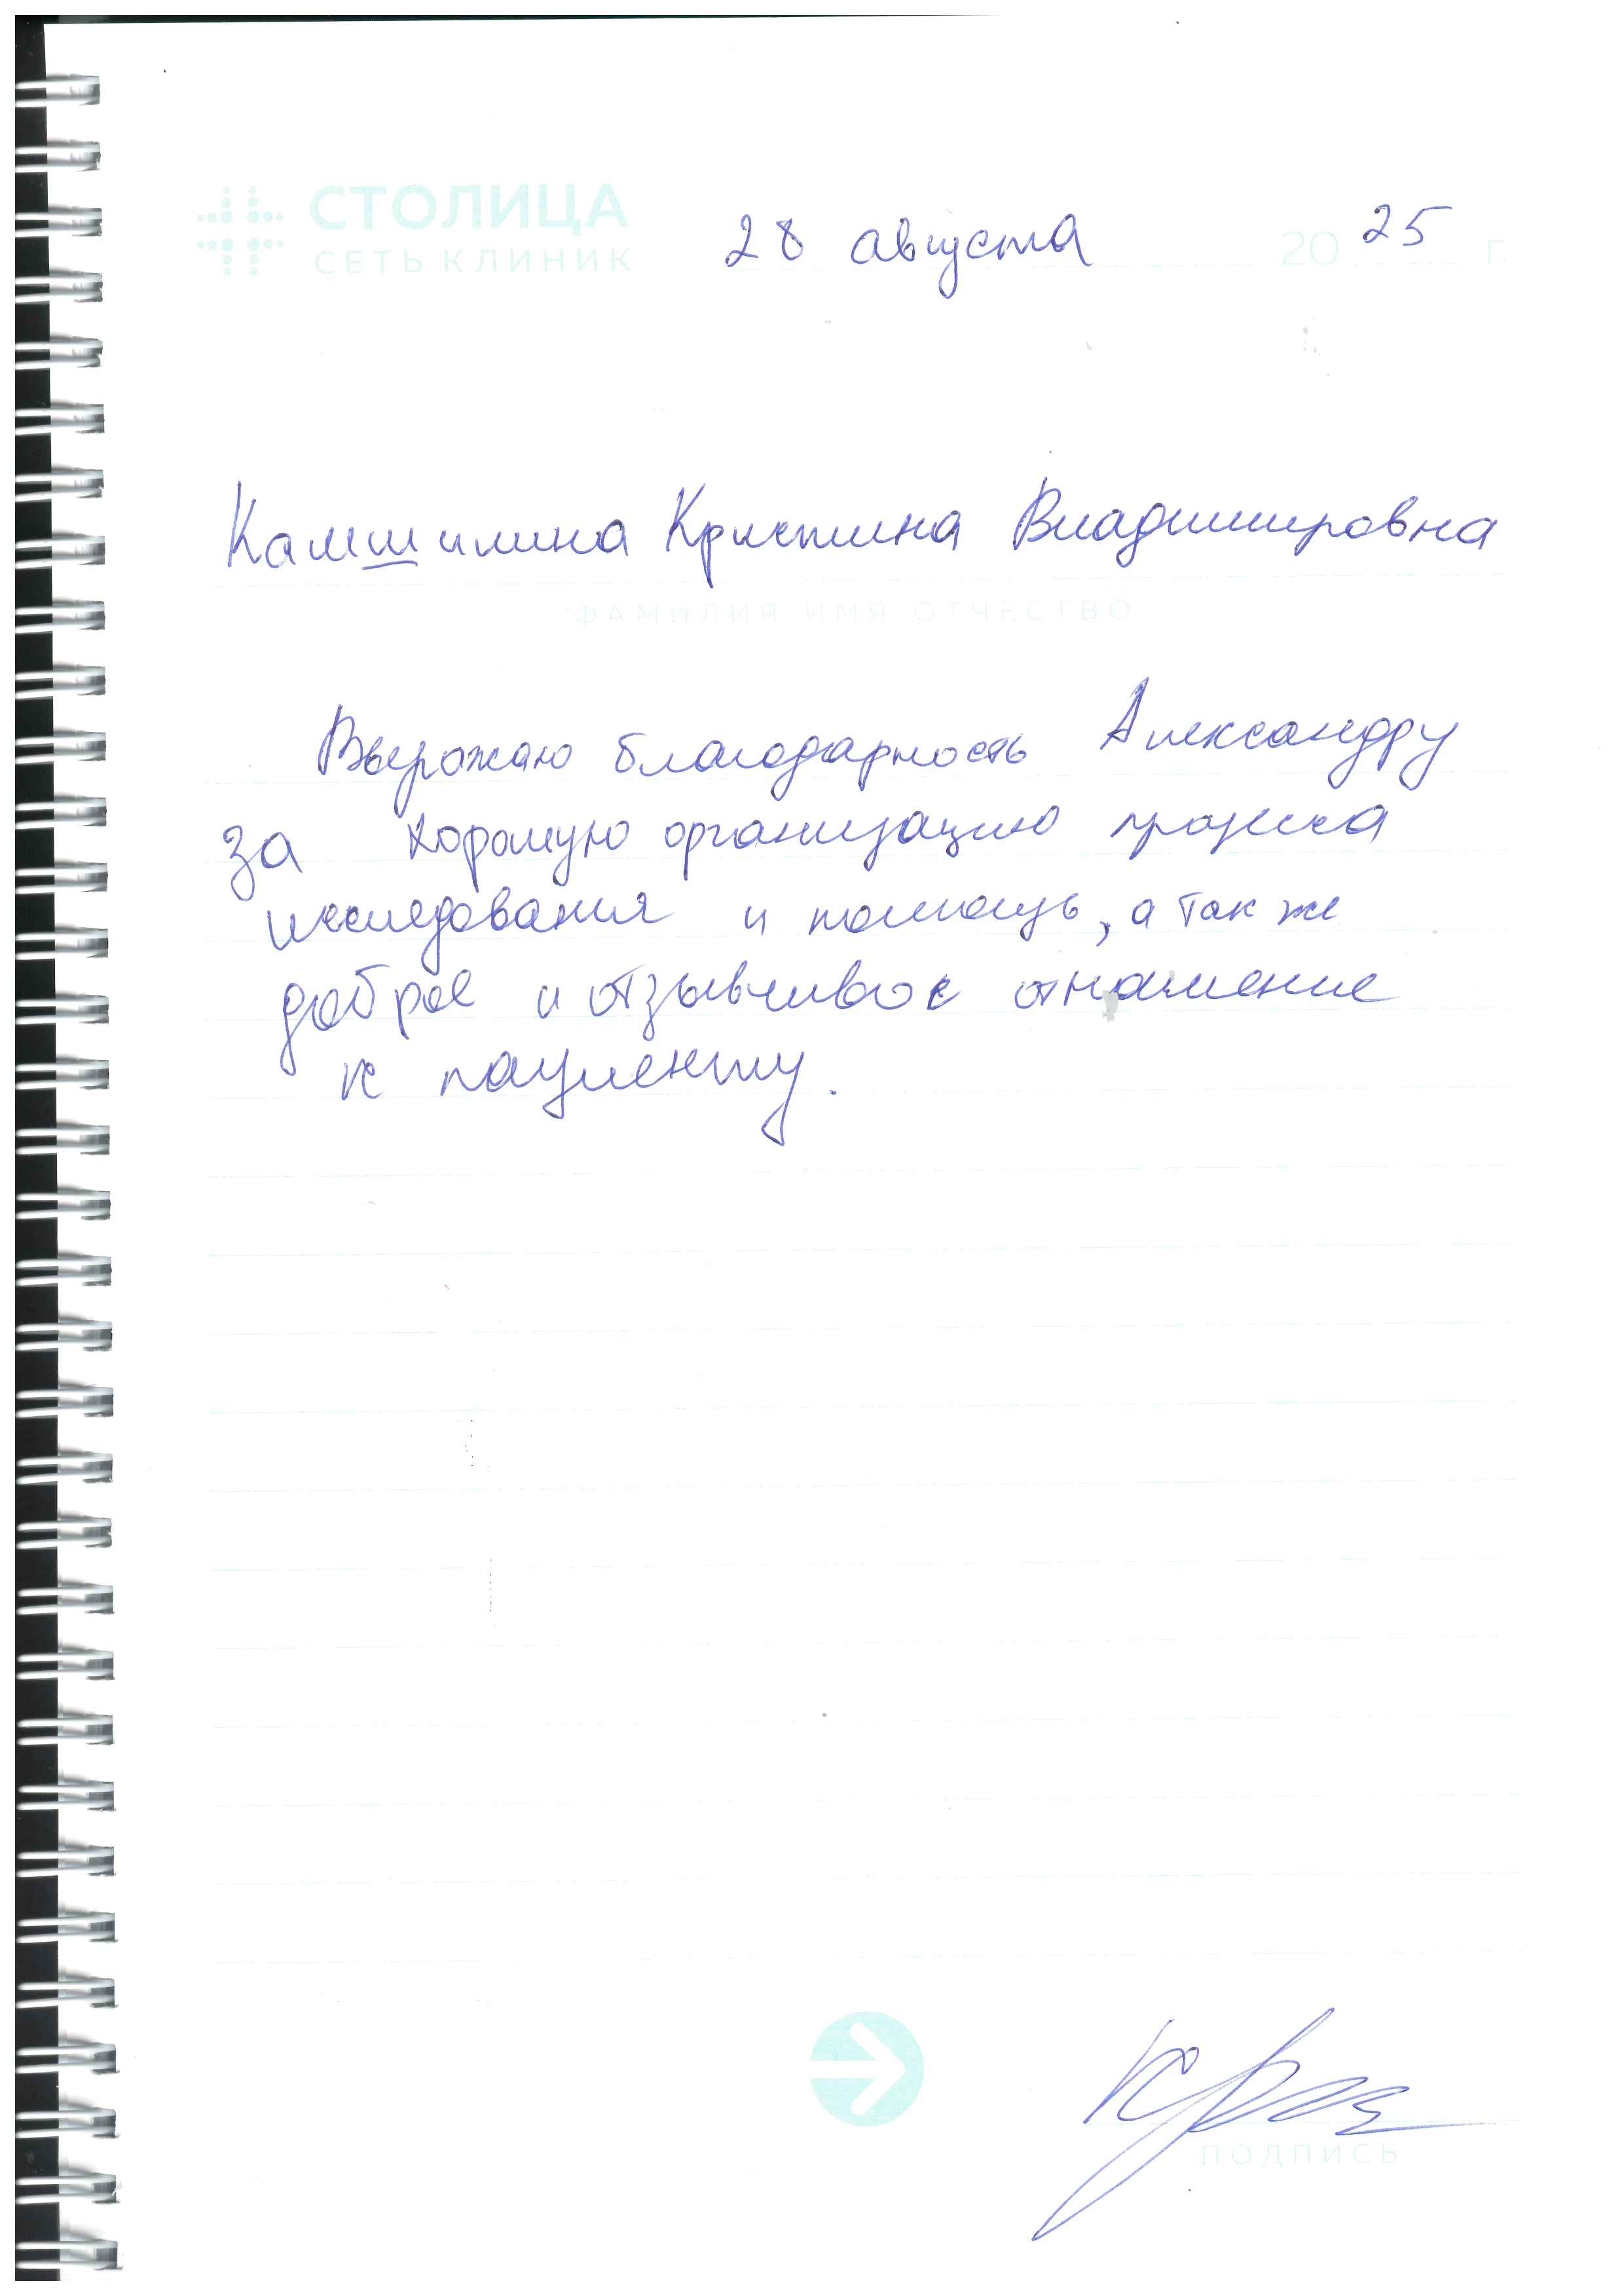 СТОЛИЦА
СЕТЬ КЛИНИК
28 августа 2025 г.
Камшилина Кристина Владимировна
ФАМИЛИЯ ИМЯ ОТЧЕСТВО
Выражаю благодарность Александру
за хорошую организацию процесса
исследования и помощь, а так же
доброе и отзывчивое отношение
к пациенту.
ПОДПИСЬ